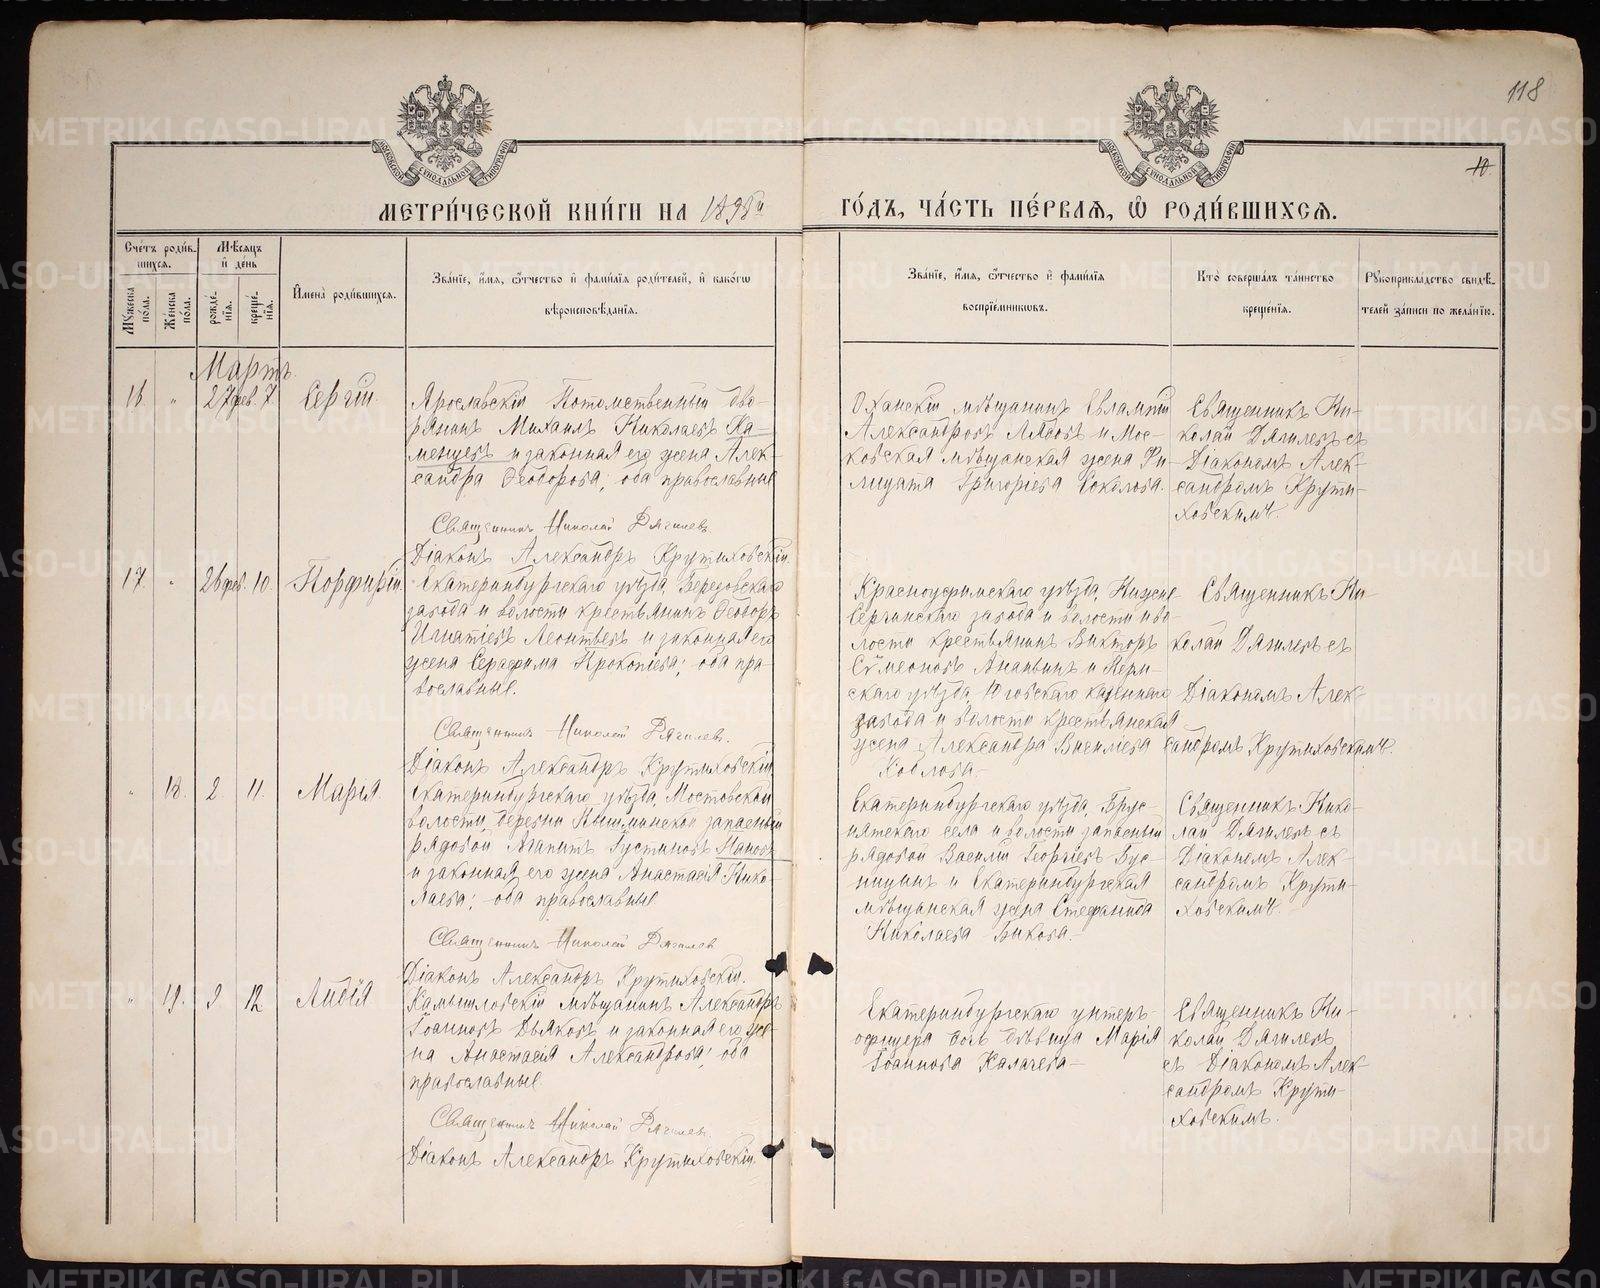 118
10.
МЕТРИ́ЧЕСКОЙ КНИ́ГИ НА 1898й
ГО́ДЪ, ЧА́СТЬ ПЕ́РВАЯ, Ѽ РОДИ́ВШИХСЯ.
Сче́тъ роди́в-
шихся.
Мꙋ́жеска по́ла.
Же́нска по́ла.
Мѣ́сяцъ
и҆ де́нь
рожде́-
нїя.
креще́-
нїя.
И҆мена̀ роди́вшихся.
Зва́нїе, и҆́мя, ѻ҆́тчество и҆ фами́лїя роди́телей, и҆ како́гѡ
вѣроисповѣ́данїя.
Зва́нїе, и҆́мя, ѻ҆́тчество и҆ фами́лїя
воспрїе́мникѡвъ.
Кто̀ соверша́лъ та́инство
креще́нїя.
Рꙋкоприкла́дство свидѣ́-
телей за́писи по жела́нїю.
Мартъ.
16 " 27 фев. 7 Сергій.
Ярославскій Потомственный дво-
рянинъ Михаилъ Николаевъ Ка-
менцевъ и законная его жена Алек-
сандра Ѳеодорова; оба православные
Священникъ Николай Дягилевъ
Діаконъ Александръ Крутиховскій.
Оханскій мѣщанинъ Евлампій
Александровъ Лядовъ и Мос-
ковская мѣщанская жена Фи-
лицата Григоріева Соколова.
Священникъ Ни-
колай Дягилевъ съ
Діакономъ Алек-
сандромъ Крути-
ховскимъ
17. " 26 фев. 10. Порфирій
Екатеринбургскаго уѣзда, Березовскаго
завода и волости крестьянинъ Ѳеодоръ
Игнатіевъ Леонтьевъ и законная его
жена Серафима Прокопіева; оба пра-
вославные.
Священникъ Николай Дягилевъ.
Діаконъ Александръ Крутиховскій
Красноуфимскаго уѣзда, Нижне-
Сергинскаго завода и волости во-
лости крестьянинъ Викторъ
Сѵмеоновъ Ананьинъ и Перм-
скаго уѣзда, Юговскаго казеннаго
завода и волости крестьянская
жена Александра Василіева
Козлова.
Священникъ Ни-
колай Дягилевъ съ
Діакономъ Алек-
сандромъ Крутиховскимъ.
" 18. 2 11. Марія
Екатеринбургскаго уѣзда, Мостовской
волости, деревни Пышминской запасный
рядовой Агапитъ Густиновъ Пановъ
и законная его жена Анастасія Нико-
лаева; оба православные
Священникъ Николай Дягилев
Діаконъ Александръ Крутиховскій.
Екатеринбургскаго уѣзда, Брус-
нятскаго села и волости запасный
рядовой Василій Георгіевъ Брус-
ницынъ и Екатеринбургская
мѣщанская жена Стефанида
Николаева Быкова.
Священникъ Нико-
лай Дягилевъ съ
Діакономъ Алек-
сандромъ Крути-
ховскимъ.
" 19. 9 12 Лидія
Камышловскій мѣщанинъ Александръ
Іоанновъ Дьяковъ и законная его же-
на Анастасія Александрова; оба
православные
Священникъ Николай Дягилевъ.
Діаконъ Александръ Крутиховскій.
Екатеринбургскаго унтеръ-
офицера дочь дѣвица Марія
Іоаннова Калачева
Священникъ Ни-
колай Дягилевъ
съ Діакономъ Алек-
сандромъ Крути-
ховскимъ.
METRIKI.GASO-URAL.RU